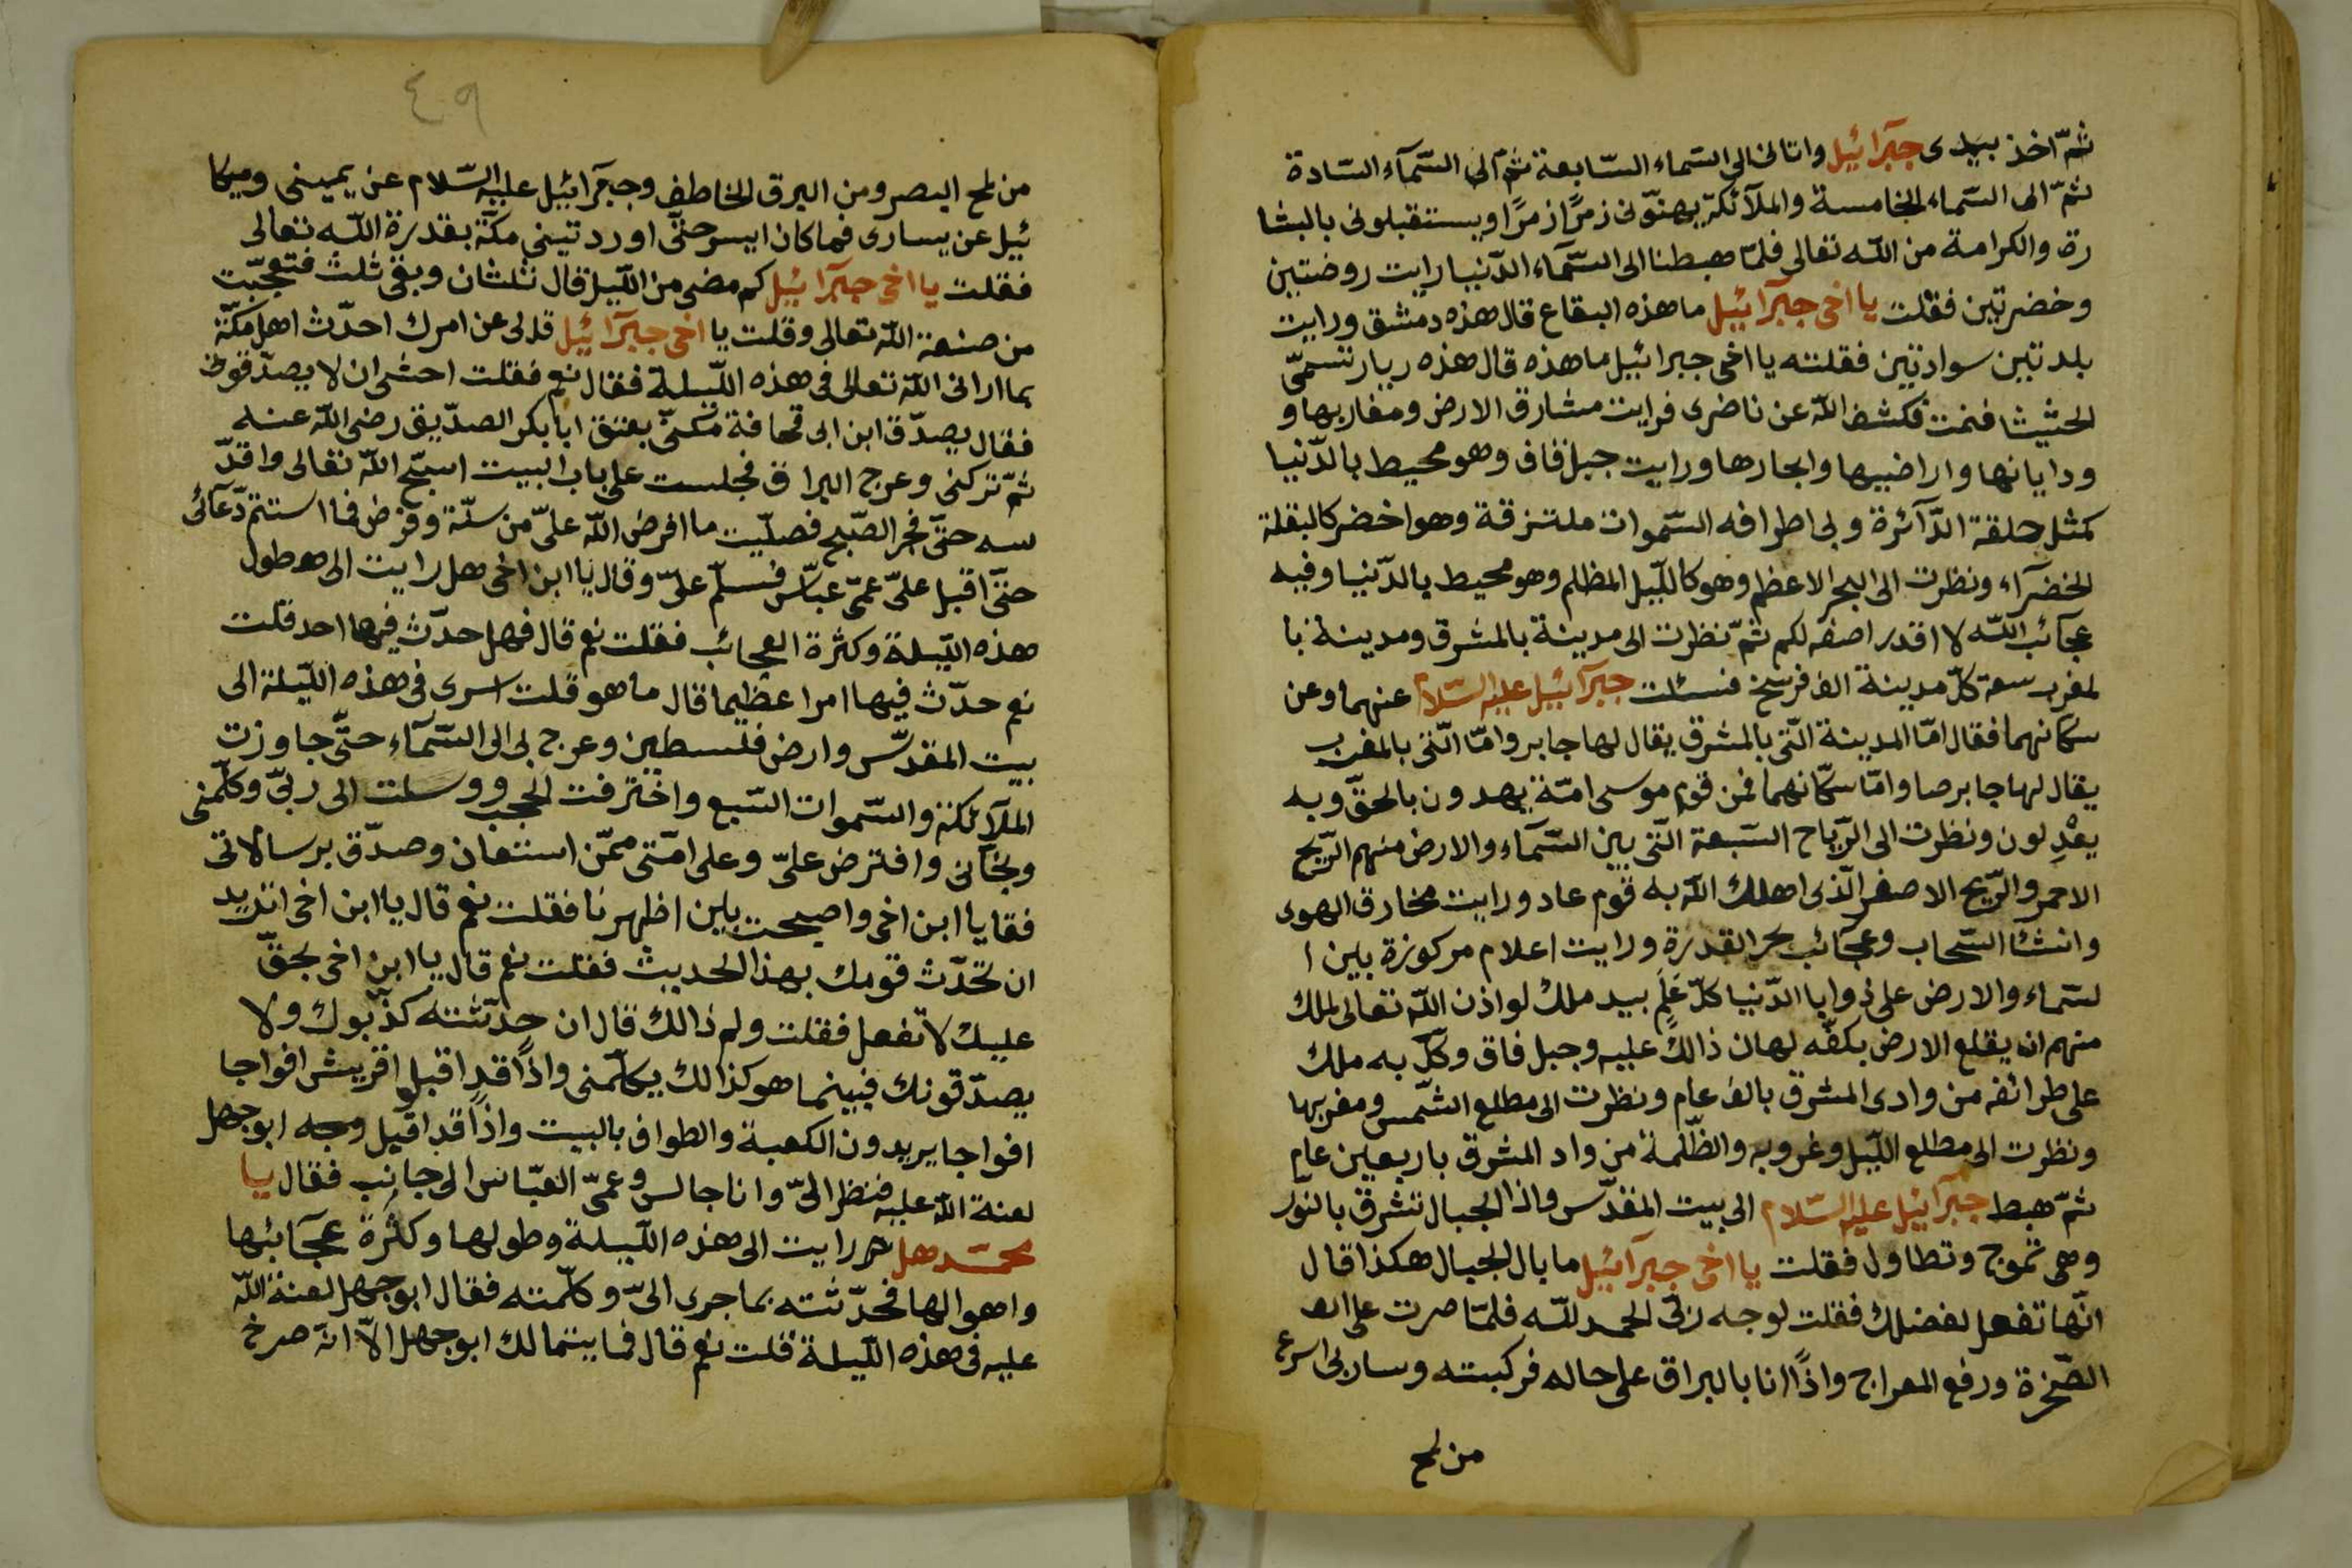 ثمّ اخذ بيدى جبرائيل واتانى الى السماء السّابعة ثمّ الى السّمآء السّادة
ثمّ الى السّماء الخامسة والملآئكة يهنّونى زمرًا زمرًا ويستقبلونى بالبشا
رة والكرامة من اللّه تعالى فلمّا هبطنا الى السّمآء الدّنيا رايت روضتين
وخضرتين فقلت يا اخى جبرآئيل ما هذه البقاع قال هذه دمشق ورايت
بلدتين سوادتين فقلته يا اخى جبرائيل ما هذه قال هذه ربار تسمّى
الحثيثا فنمت فكشف اللّه عن ناضرى فرايت مشارق الارض ومغاربها و
ودايانها واراضيها وابحارها ورايت جبل قاف وهو محيط بالدّنيا
كمثل حلقة الدّآئرة وبى اطرافه السّموات ملتزقة وهو اخضر كالبقلة
الخضرآء ونظرت الى البحر الاعظم وهو كالّليل المظلم وهو محيط بالدّنيا وفيه
عجآئب اللّه لا اقدر اصفه لكم ثمّ نظرت الى مدينة بالمشرق ومدينة با
لمغرب سعة كلّ مدينة الف فرسخ فسئلت جبرآئيل عليه السّلام عنهما وعن
سكانهما فقال امّا المدينة الّتى بالمشرق يقال لها جابر وامّا الّتى بالمغرب
يقال لها جابرصا وامّا سكّانهما فمن قوم موسى امّة يهدون بالحقّ وبه
يعْدِلون ونظرت الى الرّياح السّبعة الّتى بين السّمآء والارض منهم الرّيح
الاحمر والرّيح الاصفر الّذى اهلك اللّه به قوم عاد ورايت مخارق الهوى
وانشئا السّحاب وعجآئب بحر القدرة ورايت اعلام مركوزة بين ا
لسّماء والارض على ذوايا الدّنيا كلّ عَلَمٍ بيد ملك لو اذن اللّه تعالى لملك
منهم ان يقلع الارض بكفّه لهان ذالك عليه وجبل قاف وكلّ به ملك
على طرائفه من وادى المشرق بالف عام ونظرت الى مطلع الشّمس ومغربها
ونظرت الى مطلع اللّيل وغروبه والظّلمة من واد المشرق باربعين عام
ثمّ هبط جبرآئيل عليه السّلام الى بيت المقدّس واذا الجبال تشرق بالنّور
وهى تموج وتطاول فقلت يا اخى جبرآئيل ما بال الجبال هكذا قال
انّها تفعل لفضلك فقلت لوجه ربّى الحمد للّه فلمّا صرت على الص
الصّخرة ورفع المعراج واذًا انا بالبراق على حاله فركبته وسار بى اسرع
من لمح
٤٠٩
من لمح البصر ومن البرق الخاطف وجبرآئيل عليه السّلام عن يمينى وميكا
ئيل عن يسارى فما كان ايسر حتّى اوردتينى مكّة بقدرة اللّه تعالى
فقلت يا اخى جبرآئيل كم مضى من اللّيل قال ثلثان وبقى ثلث فتعجّبت
من صنعة اللّه تعالى وقلت يا اخى جبرآئيل قد لى عن امرك احدّث اهل مكّة
بما ارانى اللّه تعالى فى هذه اللّيلة فقال نعم فقلت اخشى ان لا يصدّقونى
فقال يصدّق ابن ابى قحافة مكنّى بعتق ابا بكر الصدّيق رضى اللّه عنه
ثمّ تركنى وعرج البراق فجلست على باب البيت اسبّح اللّه تعالى واقدّ
سه حتّى فجر الصّبح فصلّيت ما افرض اللّه علىّ من سنّة وفرض فما استتم دعآئى
حتّى اقبل علىّ عمّى عبّاس فسلّم علىّ وقال يا ابن اخى هل رايت الى ه‍ طول
هذه اللّيلة وكثرة العجائب فقلت نعم قال فهل حدّث فيها احد قلت
نعم حدّث فيها امرا عظيما قال ما هو قلت اسرى فى هذه اللّيلة الى
بيت المقدّس وارض فلسطين وعرج بى الى السّمآء حتّى جاوزت
الملآئكة والسّموات السّبع واخترفت الحجب ووسلت الى ربّى وكلّمنى
ونجّآنى وافترض علىّ وعلى امّتى ممّن استعان وصدّق برسالاتى
فقا يا ابن اخى واصبحت بلين اظهرنا فقلت نعم قال يا ابن اخى اتريد
ان تحدّث قومك بهذا الحديث فقلت نعم قال يا ابن اخى بحقّ
عليك لا تفعل فقلت ولم ذالك قال ان حدّثته كذّبوك ولا
يصدّقونك فبينما هو كذالك يكلّمنى واذًا قد اقبلوا قريش افواجا
افواجا يريدون الكعبة والطواف بالبيت واذًا قد اقبل وجه ابوجهل
لعنة اللّه عليه فنظر الىّ وانا جالس وعمّى العبّاس الى جانب فقال يا
محمّد هل رايت الى هذه اللّيلة وطولها وكثرة عجآئبها
واهوالها فحدّثته بما جرى الىّ وكلّمته فقال ابوجهل لعنة اللّه
عليه فى هذه اللّيلة قلت نعم قال فما يتمالك ابوجهل الاّ انّه صرخ